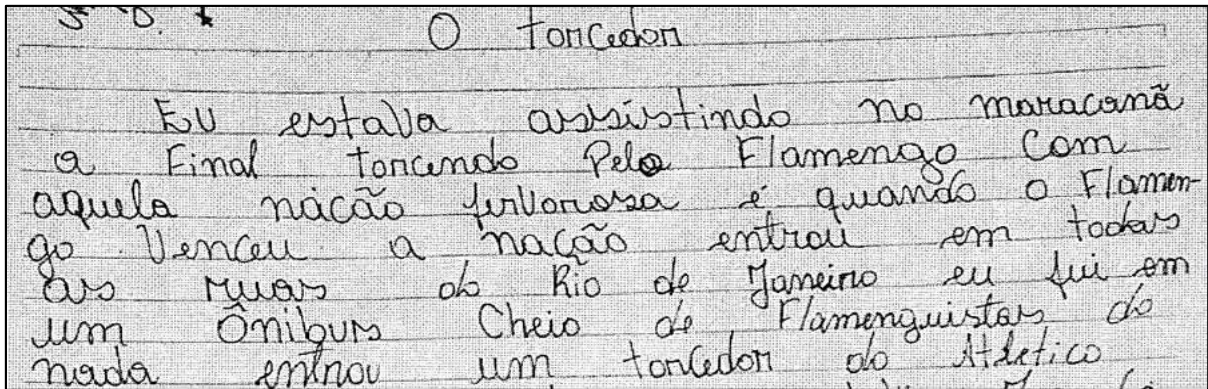 O torcedor
EU estava assistindo no maracanã
a Final torcendo Pelo Flamengo Com
aquela nácão fervorosa é quando o Flamen-
go Venceu a nação entrou em todas
as ruas do Rio de Janeiro eu fui em
um Ônibus Cheio de Flamenguistas do
nada entrou um torcedor do Atletico